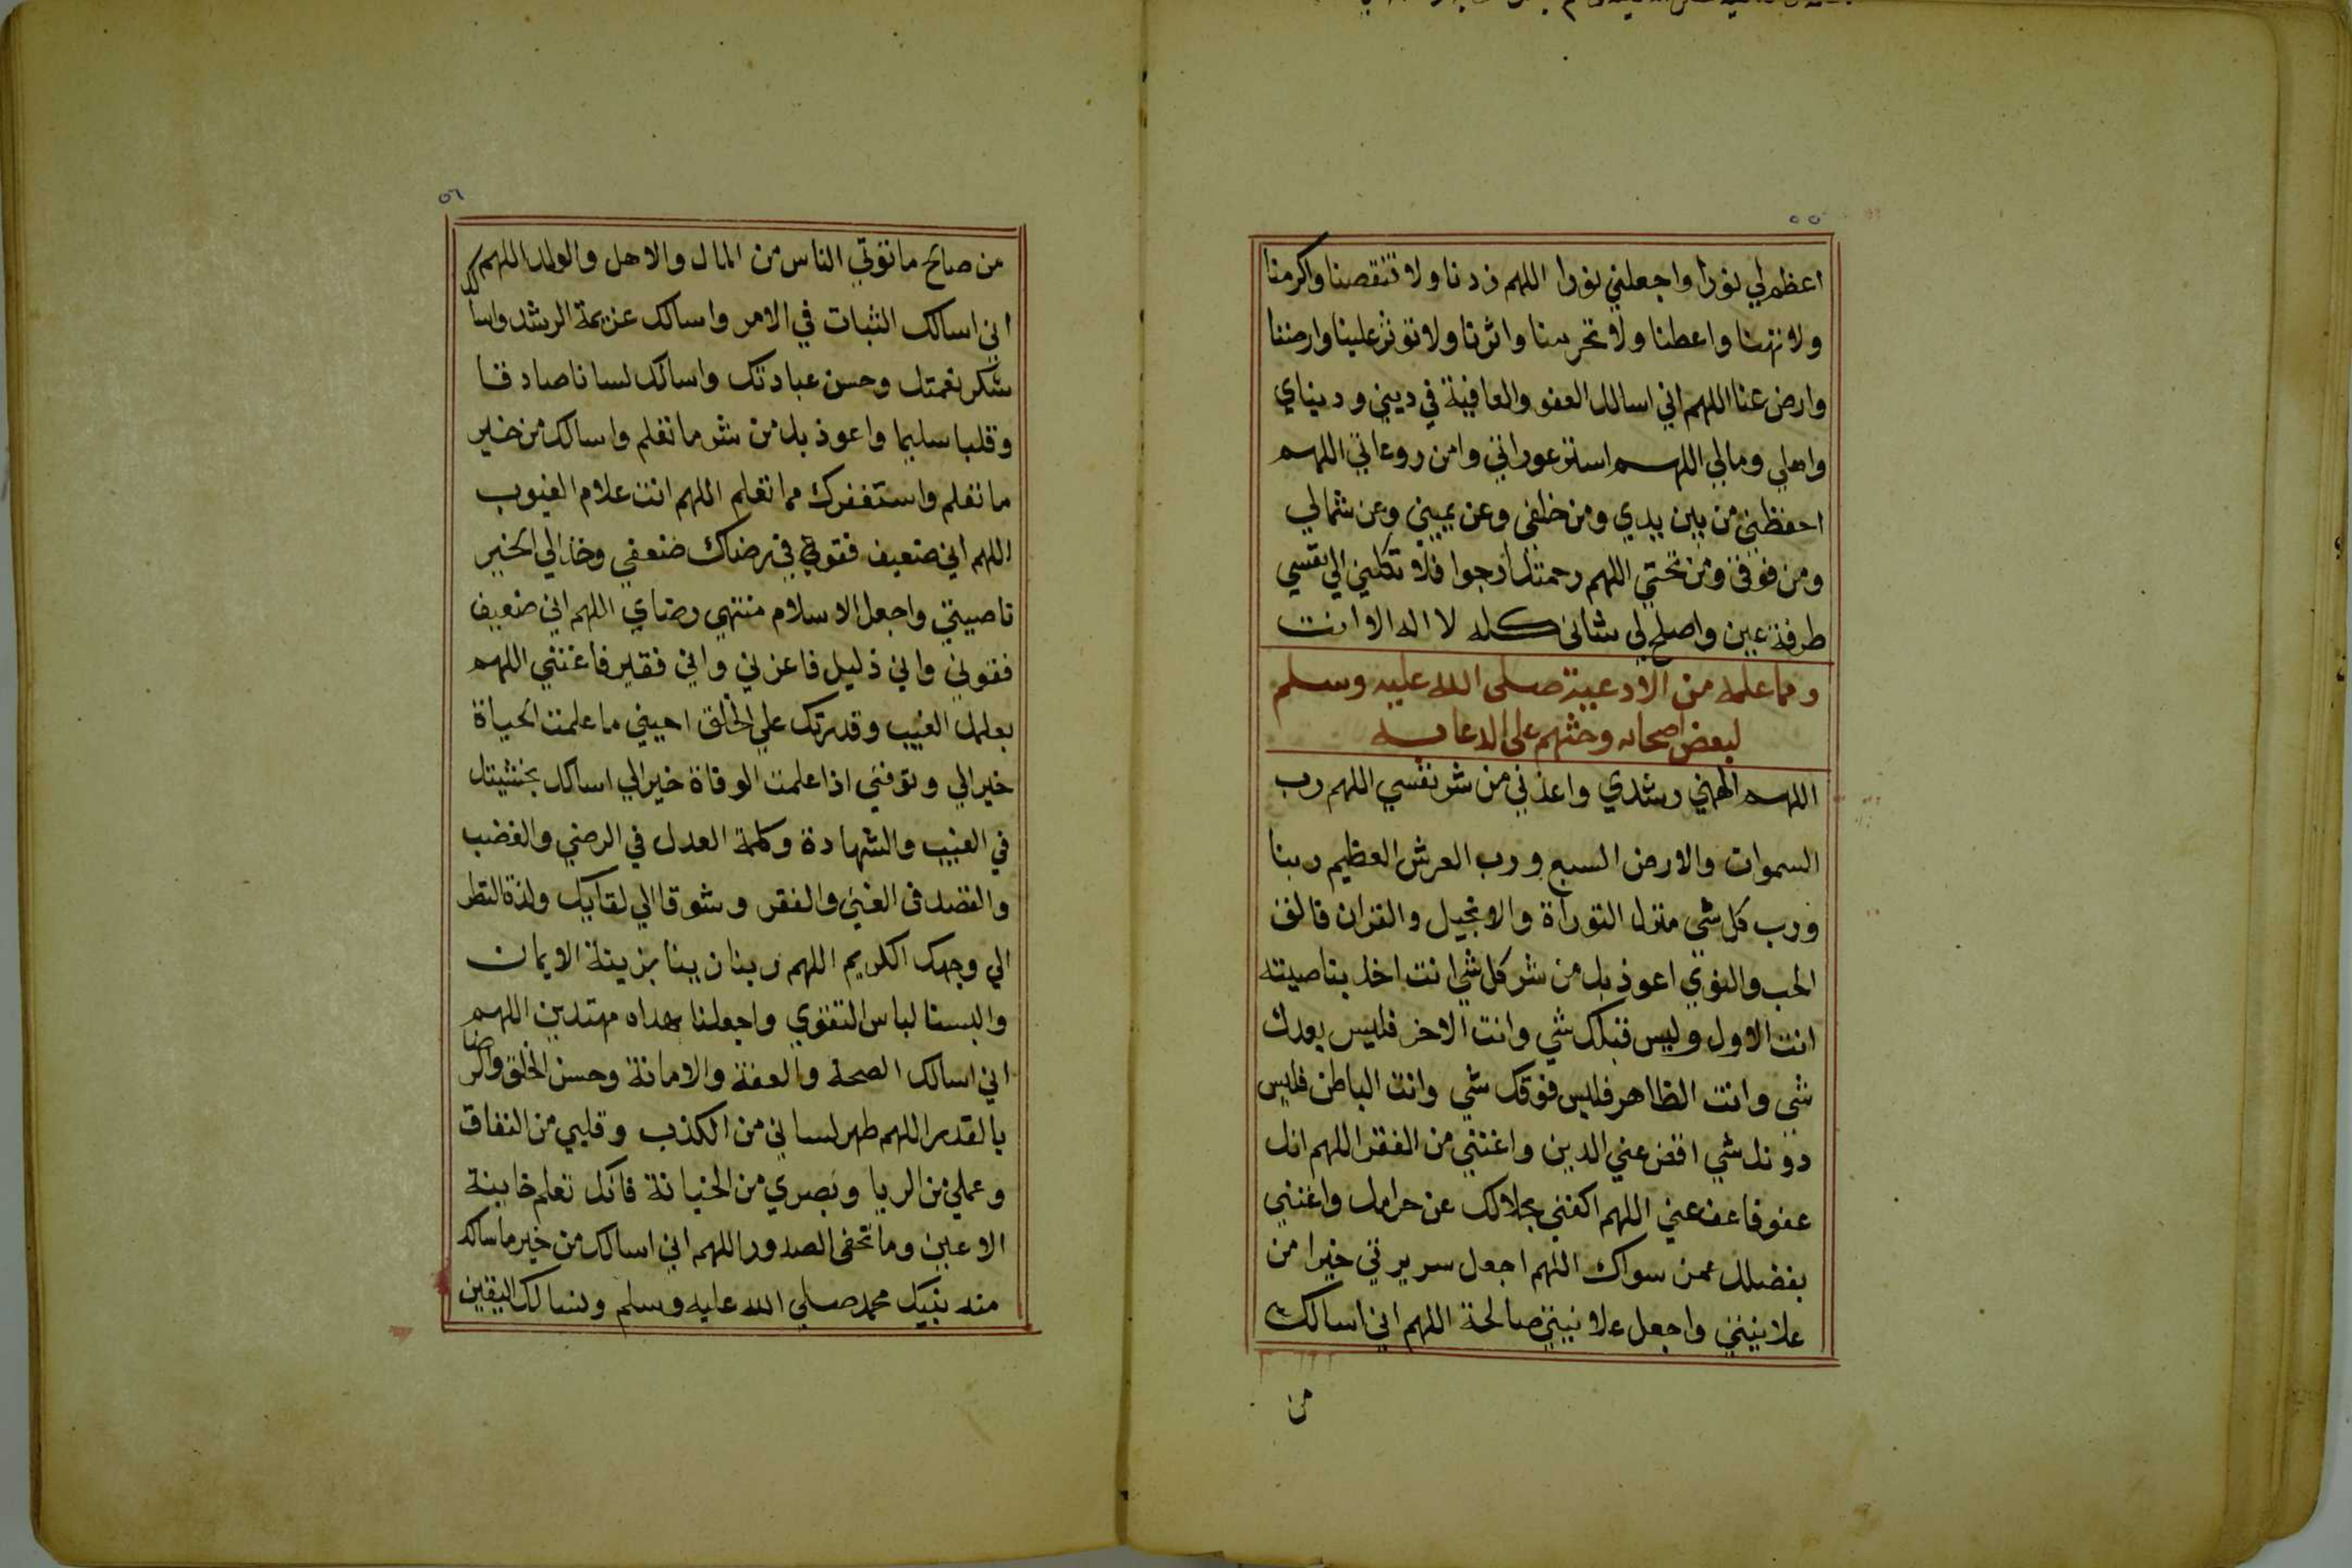 ٥٥
اعظم لي نورا واجعلني نورا اللهم زدنا ولا تنقصنا واكرمنا
ولا تهنا واعطنا ولا تحرمنا واثرنا ولا توثر علينا وارضنا
وارض عنا اللهم اني اسالك العفو والعافية في ديني ودنياي
واهلي ومالي اللهم استر عوراتي وامن روعاتي اللهم
احفظني من بين يدي ومن خلفي وعن يميني وعن شمالي
ومن فوقي ومن تحتي اللهم رحمتك ارجوا فلا تكلني الي نفسي
طرفة عين واصلح لي شاني كله لا اله الا انت
ومما علمه من الادعية صلى الله عليه وسلم
لبعض اصحابه وحثهم على الدعا به
اللهم الهمني رشدي واعذني من شر نفسي اللهم رب
السموات والارض السبع ورب العرش العظيم ربنا
ورب كل شي منزل التوراة والانجيل والقران فالق
الحب والنوي اعوذ بك من شر كل شي انت اخذ بناصيته
انت الاول وليس قبلك شي وانت الاخر فليس بعدك
شي وانت الظاهر فليس فوقك شي وانت الباطن فليس
دونك شي اقض عني الدين واغنني من الفقر اللهم انك
عفو فاعف عني اللهم اكفني بحلالك عن حرامك واغنني
بفضلك عمن سواك اللهم اجعل سريرتي خيرا من
علانيتي واجعل علانيتي صالحة اللهم اني اسالك
من
٥٦
من صالح ما توتي الناس من المال والاهل والولد اللهم
اني اسالك الثبات في الامر واسالك عزيمة الرشد واسالك
شكر نعمتك وحسن عبادتك واسالك لسانا صادقا
وقلبا سليما واعوذ بك من شر ما تعلم واسالك من خير
ما تعلم واستغفرك مما تعلم اللهم انت علام الغيوب
اللهم اني ضعيف فقوي في رضاك ضعفي وخذ الي الخير
ناصيتي واجعل الاسلام منتهي رضاي اللهم اني ضعيف
فقوني واني ذليل فاعزني واني فقير فاغنني اللهم
بعلمك الغيب وقدرتك علي الخلق احيني ما علمت الحياة
خيرا لي وتوفني اذا علمت الوفاة خيرا لي اسالك خشيتك
في الغيب والشهادة وكلمة العدل في الرضي والغضب
والقصد في الغني والفقر وشوقا الي لقايك ولذة النظر
الي وجهك الكريم اللهم ربنا زينا بزينة الايمان
والبسنا لباس التقوي واجعلنا هداه مهتدين اللهم
اني اسالك الصحة والعفة والامانة وحسن الخلق والرضا
بالقدر اللهم طهر لساني من الكذب وقلبي من النفاق
وعملي من الريا وبصري من الخيانة فانك تعلم خاينة
الاعين وما تخفي الصدور اللهم اني اسالك من خير ما سالك
منه نبيك محمد صلي الله عليه وسلم ونسالك اليقين